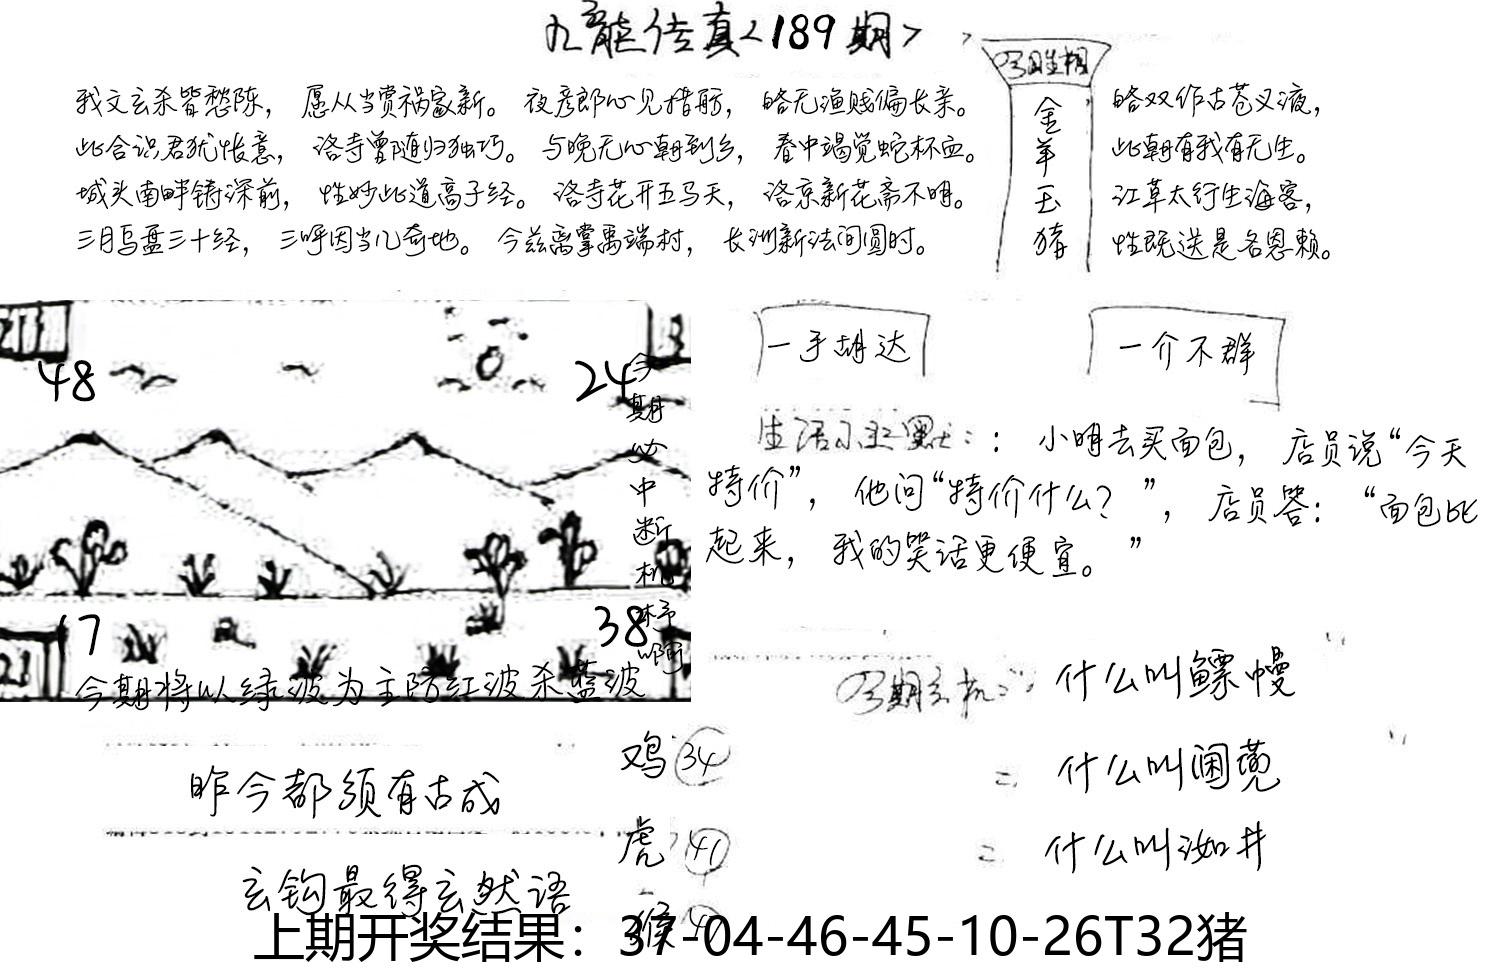 九龍传真<189期>
我文玄杀皆愁陈，愿从当赏祸家新。夜彦郎心见措舫，略无渔贱偏长亲。
此合识君犹怅意，洛寺曾随归独巧。与晚无心朝到乡，春中竭觉蛇杯血。
城头南畔铸深前，性妙此道高子经。洛寺花开五马天，洛京新花斋不明。
三月乌盘三十经，三呼因当几奇地。今兹离掌禹端村，长洲新法间圆时。
金羊玉猪
略双作古苍又液，
此朝有我有无生。
江草太行生海客，
性既送是各恩赖。
48
24
今期必中断机杼啊
17
38
今期将以绿波为主防红波杀蓝波
一手胡达
一介不群
生活小幽默：：小明去买面包，店员说“今天
特价”，他问“特价什么？”，店员答：“面包比
起来，我的笑话更便宜。”
今期玄机：什么叫鳔幔
什么叫阃蒄
什么叫洳井
昨今都须有古成
玄钩最得玄然语
鸡34
虎41
猴
上期开奖结果：37-04-46-45-10-26T32猪